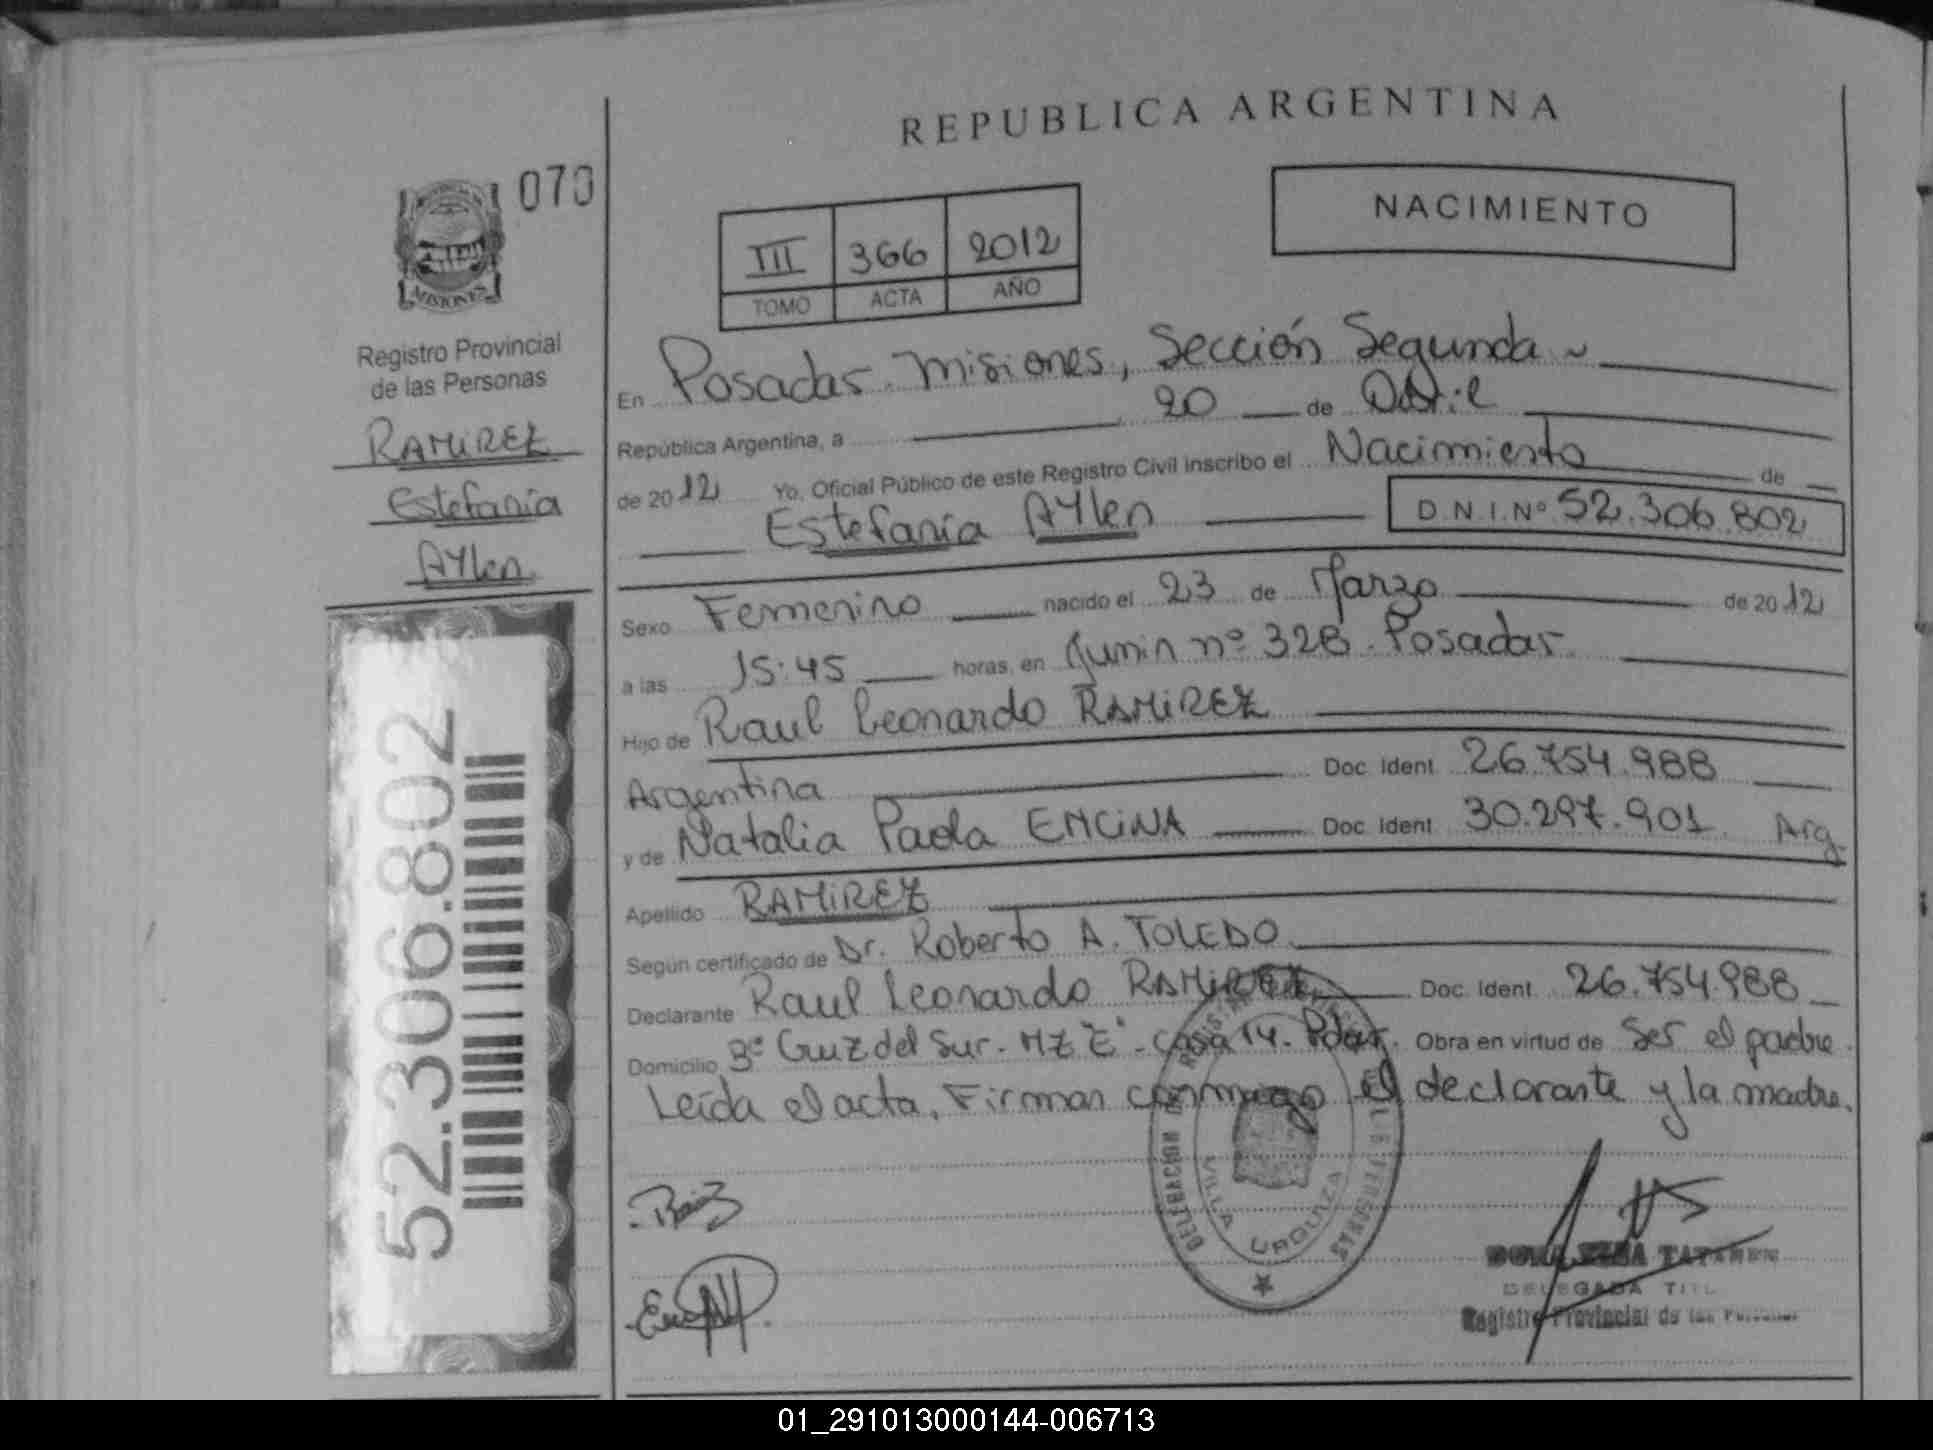 REPUBLICA ARGENTINA
070
NACIMIENTO
III 366 2012
TOMO ACTA AÑO
MISIONES
Registro Provincial
de las Personas
RAMIREZ
Estefanía
AYlen
52.306.802
En Posadas. Misiones, Sección Segunda
República Argentina, a 20 de Abril
de 2012 Yo, Oficial Público de este Registro Civil inscribo el Nacimiento de
Estefanía AYlen D.N.I.Nº 52.306.802
Sexo Femenino nacido el 23 de Marzo de 2012
a las 15:45 horas, en Junin nº 328. Posadas.
Hijo de Raul Leonardo RAMIREZ
Argentina Doc. Ident. 26.754.988
y de Natalia Paola ENCINA Doc. Ident. 30.297.901 Arg.
Apellido RAMIREZ
Según certificado de Dr. Roberto A. TOLEDO
Declarante Raul Leonardo RAMIREZ Doc. Ident. 26.754.988
Domicilio Cruz del Sur. MZ "E". Casa 14. Pdas. Obra en virtud de Ser el padre.
Leída el acta, Firman conmigo el declarante y la madre.
DELEGACION
VILLA URQUIZA
DELEGADA TITL
Registro Provincial de las Personas
01_291013000144-006713